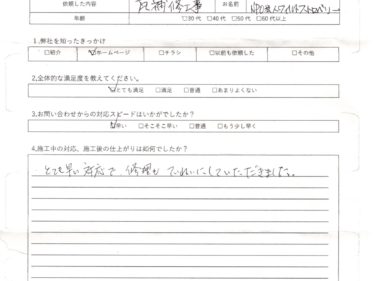 依頼した内容 瓦補修工事 お名前 NPO法人ワイルドストロベリー
年齢 □30代 □40代 □50代 □60代以上
1.弊社を知ったきっかけ
□紹介 ☑ホームページ □チラシ □以前も依頼した □その他
2.全体的な満足度を教えてください。
☑とても満足 □満足 □普通 □あまりよくない
3.お問い合わせからの対応スピードはいかがでしたか?
☑早い □そこそこ早い □普通 □もう少し早く
4.施工中の対応、施工後の仕上がりは如何でしたか?
とても早い対応で 修理も ていねいにしていただきました。